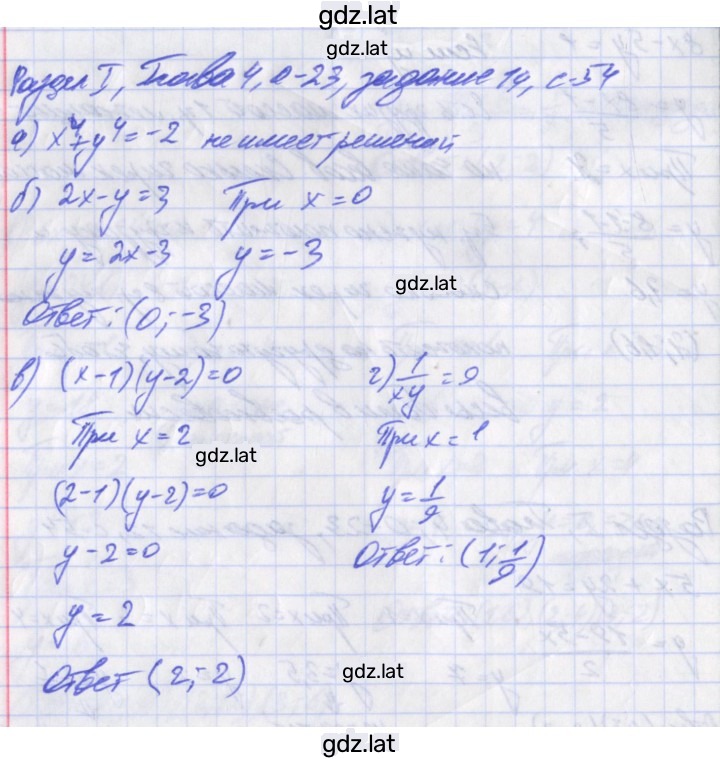 gdz.lat
Раздел I, Глава 4, 0-23, задание 14, с-54
а) x⁴+y⁴=-2 не имеет решений
б) 2x-y=3 При x=0
y=2x-3 y=-3
gdz.lat
Ответ: (0;-3)
в) (x-1)(y-2)=0 г) 1/xy=9
При x=2 При x=1
gdz.lat
(2-1)(y-2)=0 y=1/9
y-2=0 Ответ: (1;1/9)
y=2
Ответ (2;2)
gdz.lat
gdz.lat